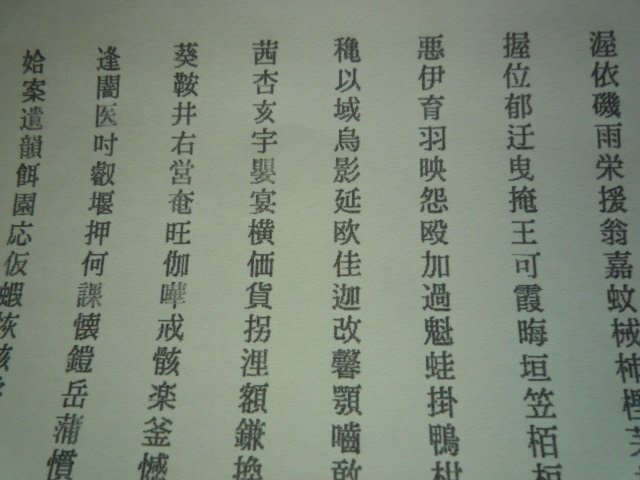 渥依磯雨栄援翁嘉蚊械柿樫
握位郁迂曳掩王可霞晦垣笠栢桓
悪伊育羽映怨殴加過魁蛙掛鴨柑
穐以域烏影延欧佳迦改馨顎噛敢
茜杏亥宇嬰宴横価貨拐浬額鎌換
葵鞍井右営奄旺伽嘩戒骸楽釜憾
逢闇医吋叡堰押何課懐鎧岳蒲慣
姶案遺韻餌園応仮蝦恢